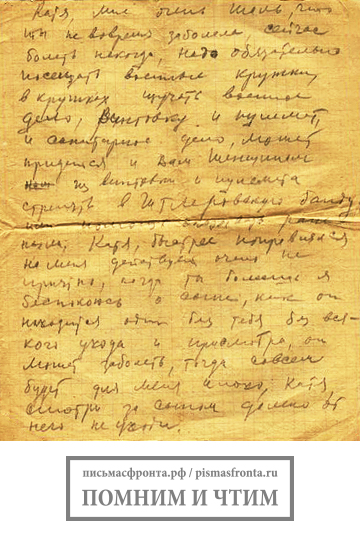 Катя, мне очень жаль, что
ты не вовремя заболела, сейчас
болеть некогда, надо обязательно
посещать военные кружки,
в кружках изучать военное
дело, винтовку и пулемет,
и санитарное дело, может
придется и Вам женщинам
из винтовки и пулемета
стрелять в Гитлеровскую банду
Катя, быстрее поправляйся
на меня действует очень не
приятно, когда ты болеешь я
беспокоюсь о сыне, как он
находится один без тебя без вся-
кого ухода и присмотра, он
может заболеть, тогда совсем
будет для меня плохо, Катя
смотри за сыном далеко от
него не уходи.
письмасфронта.рф / pismasfronta.ru
ПОМНИМ И ЧТИМ